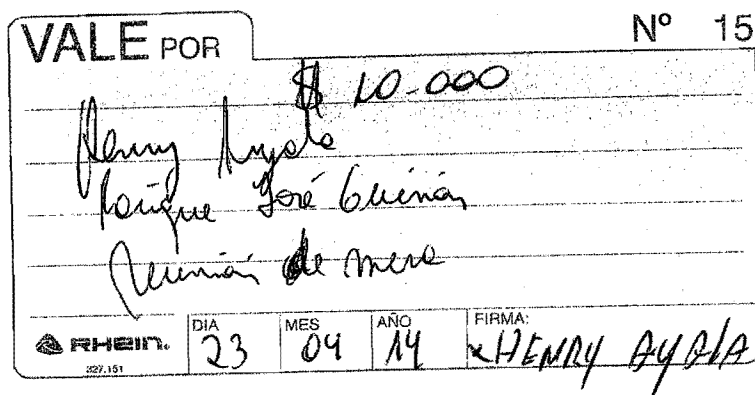 VALE POR
Nº 15
$ 10.000
Henry Ayala
José
Reunión de mesa
RHEIN.
327.151
DIA 23
MES 04
AÑO 14
FIRMA: HENRY AYALA